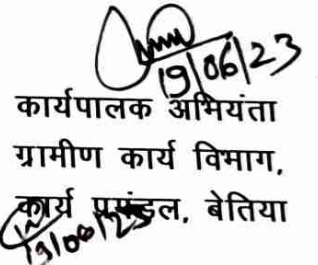 19/06/23
कार्यपालक अभियंता
ग्रामीण कार्य विभाग,
कार्य प्रमंडल, बेतिया
19/06/23